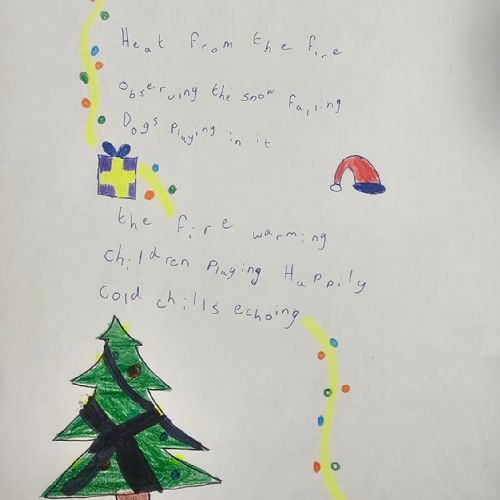 Heat from the fire
Observing the snow falling
Dogs playing in it
the fire warming
children playing Happily
cold chills echoing